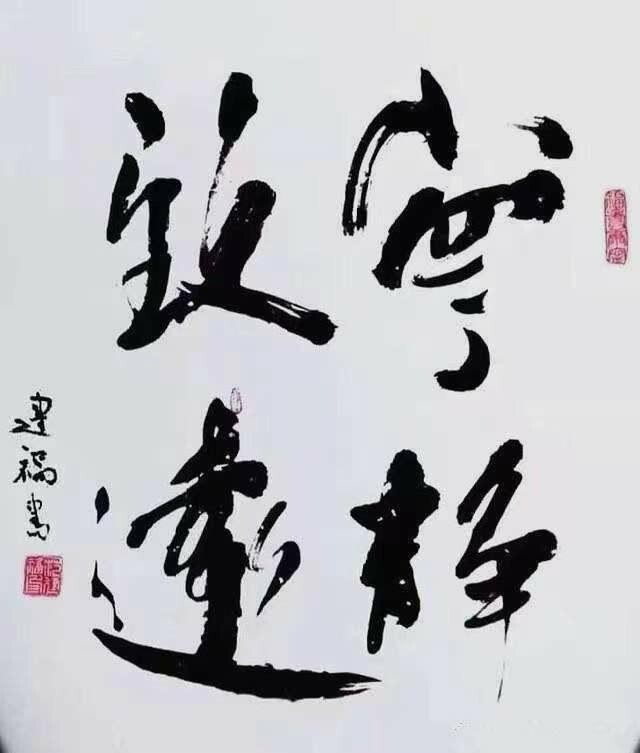 寧靜
致遠
建福書